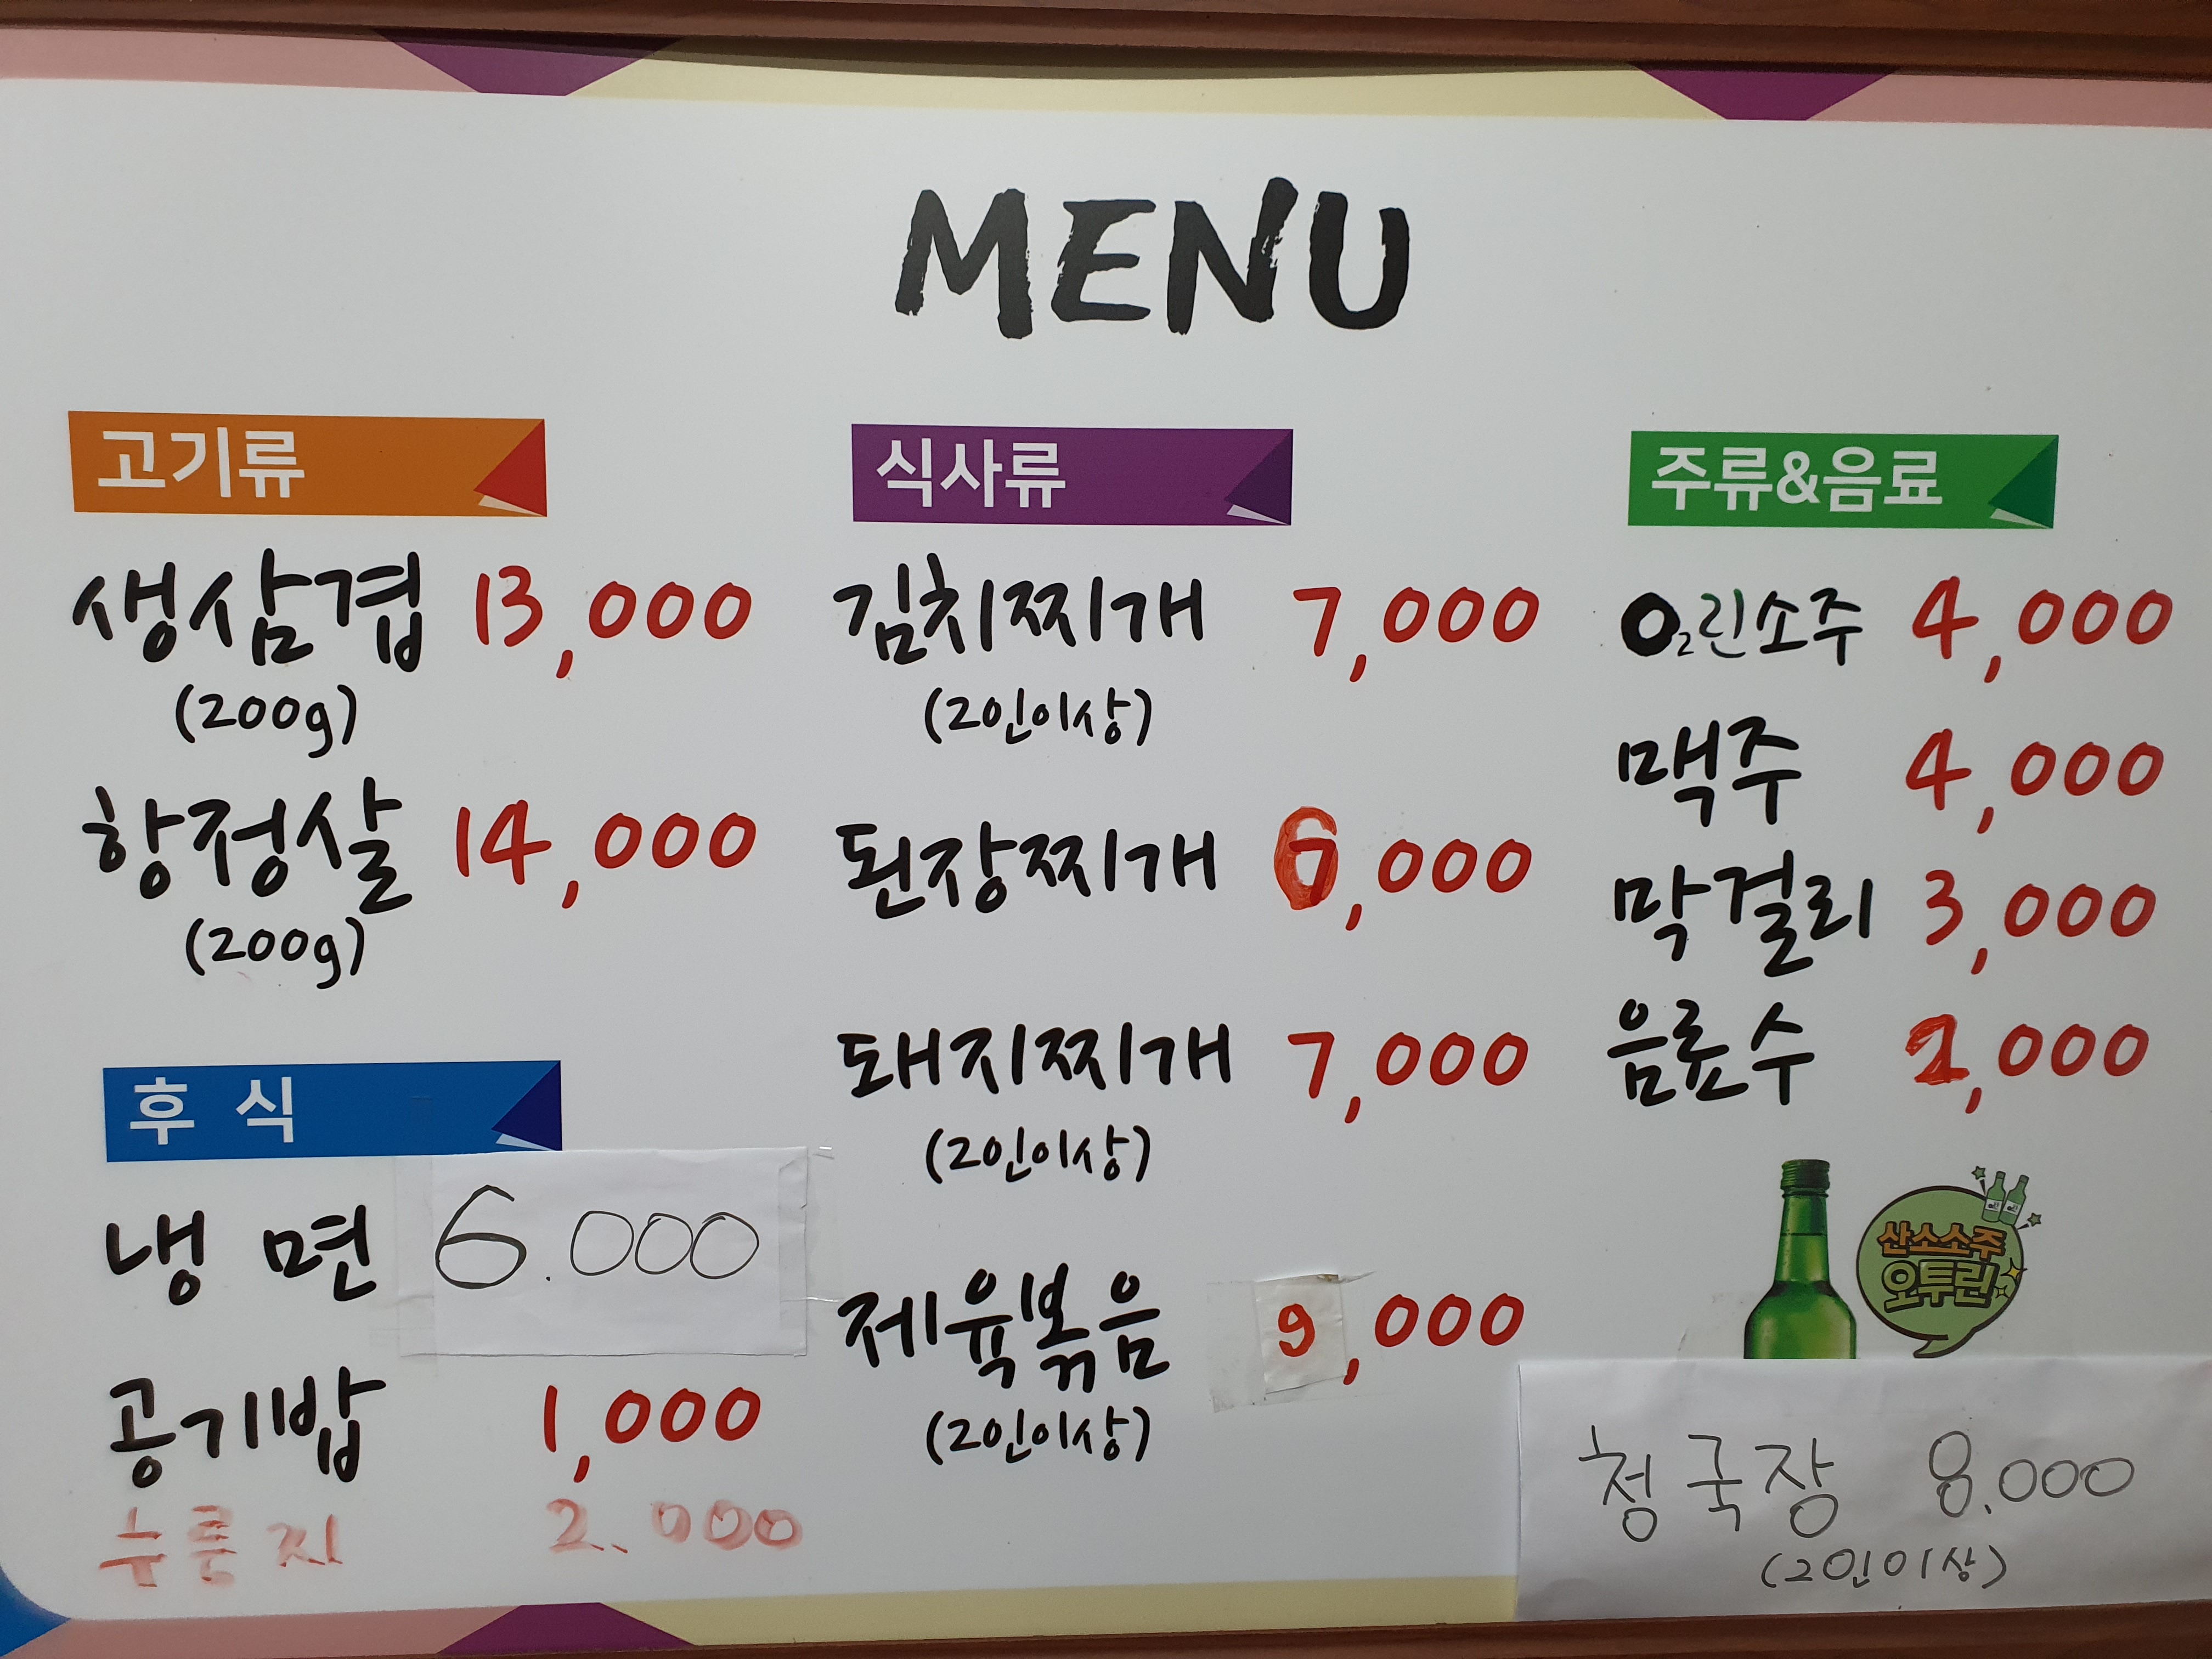 MENU
고기류
생삼겹 13,000
(200g)
항정살 14,000
(200g)
후 식
냉 면 6.000
공기밥 1,000
누룽지 2.000
식사류
김치찌개 7,000
(2인이상)
된장찌개 6,000
돼지찌개 7,000
(2인이상)
제육볶음 9,000
(2인이상)
주류&음료
O₂린소주 4,000
맥주 4,000
막걸리 3,000
음료수 2,000
산소소주
오투린
청국장 8.000
(2인이상)